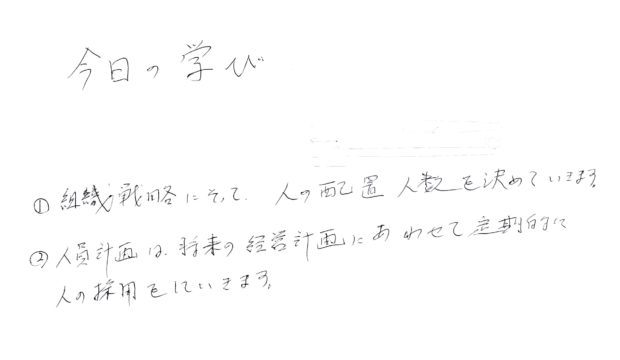 今日の学び
① 組織戦略にそって、人の配置 人数を決めていきます
② 人員計画は、将来の経営計画にあわせて定期的に
人の採用をしていきます。